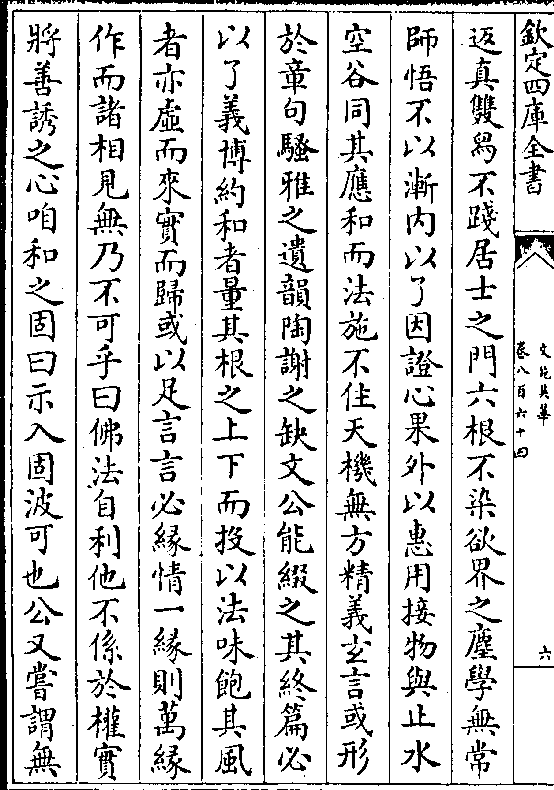 欽定四庫全書
文苑英華
卷八百六十四
六
返真雙舄不踐居士之門六根不染欲界之塵學無常
師悟不以漸内以了因證心果外以惠用接物與止水
空谷同其應和而法施不住天機無方精義𤣥言或形
於章句騷雅之遺韻陶謝之缺文公能綴之其終篇必
以了義博約和者量其根之上下而投以法味飽其風
者亦虛而來實而歸或以足言言必緣情一緣則萬緣
作而諸相見無乃不可乎曰佛法自利他不係於權實
將善誘之心咱和之固曰示入固波可也公又嘗謂無